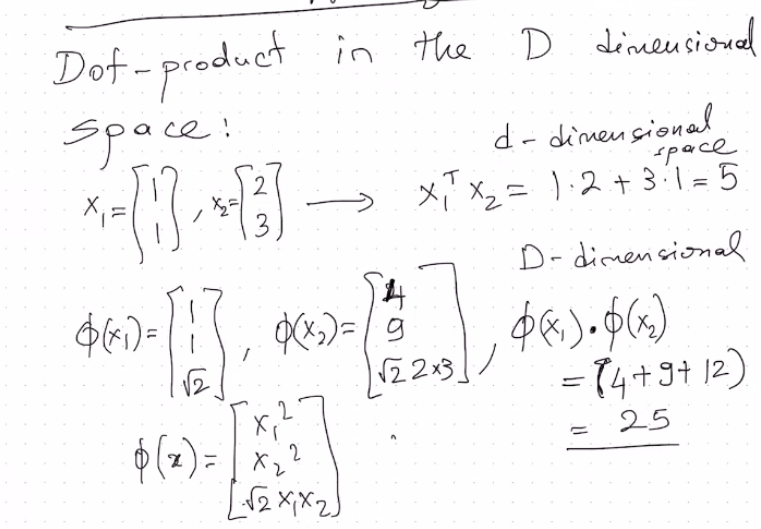 Dot-product in the D dimensional
space:
d-dimensional space
x₁ = [1 1], x₂ = [2 3] → x₁ᵀ x₂ = 1·2 + 3·1 = 5
D-dimensional
ϕ(x₁) = [1 1 √2], ϕ(x₂) = [4 9 √2 2×3], ϕ(x₁)·ϕ(x₂)
= (4+9+12)
= 25
ϕ(x) = [x₁² x₂² √2 x₁x₂]